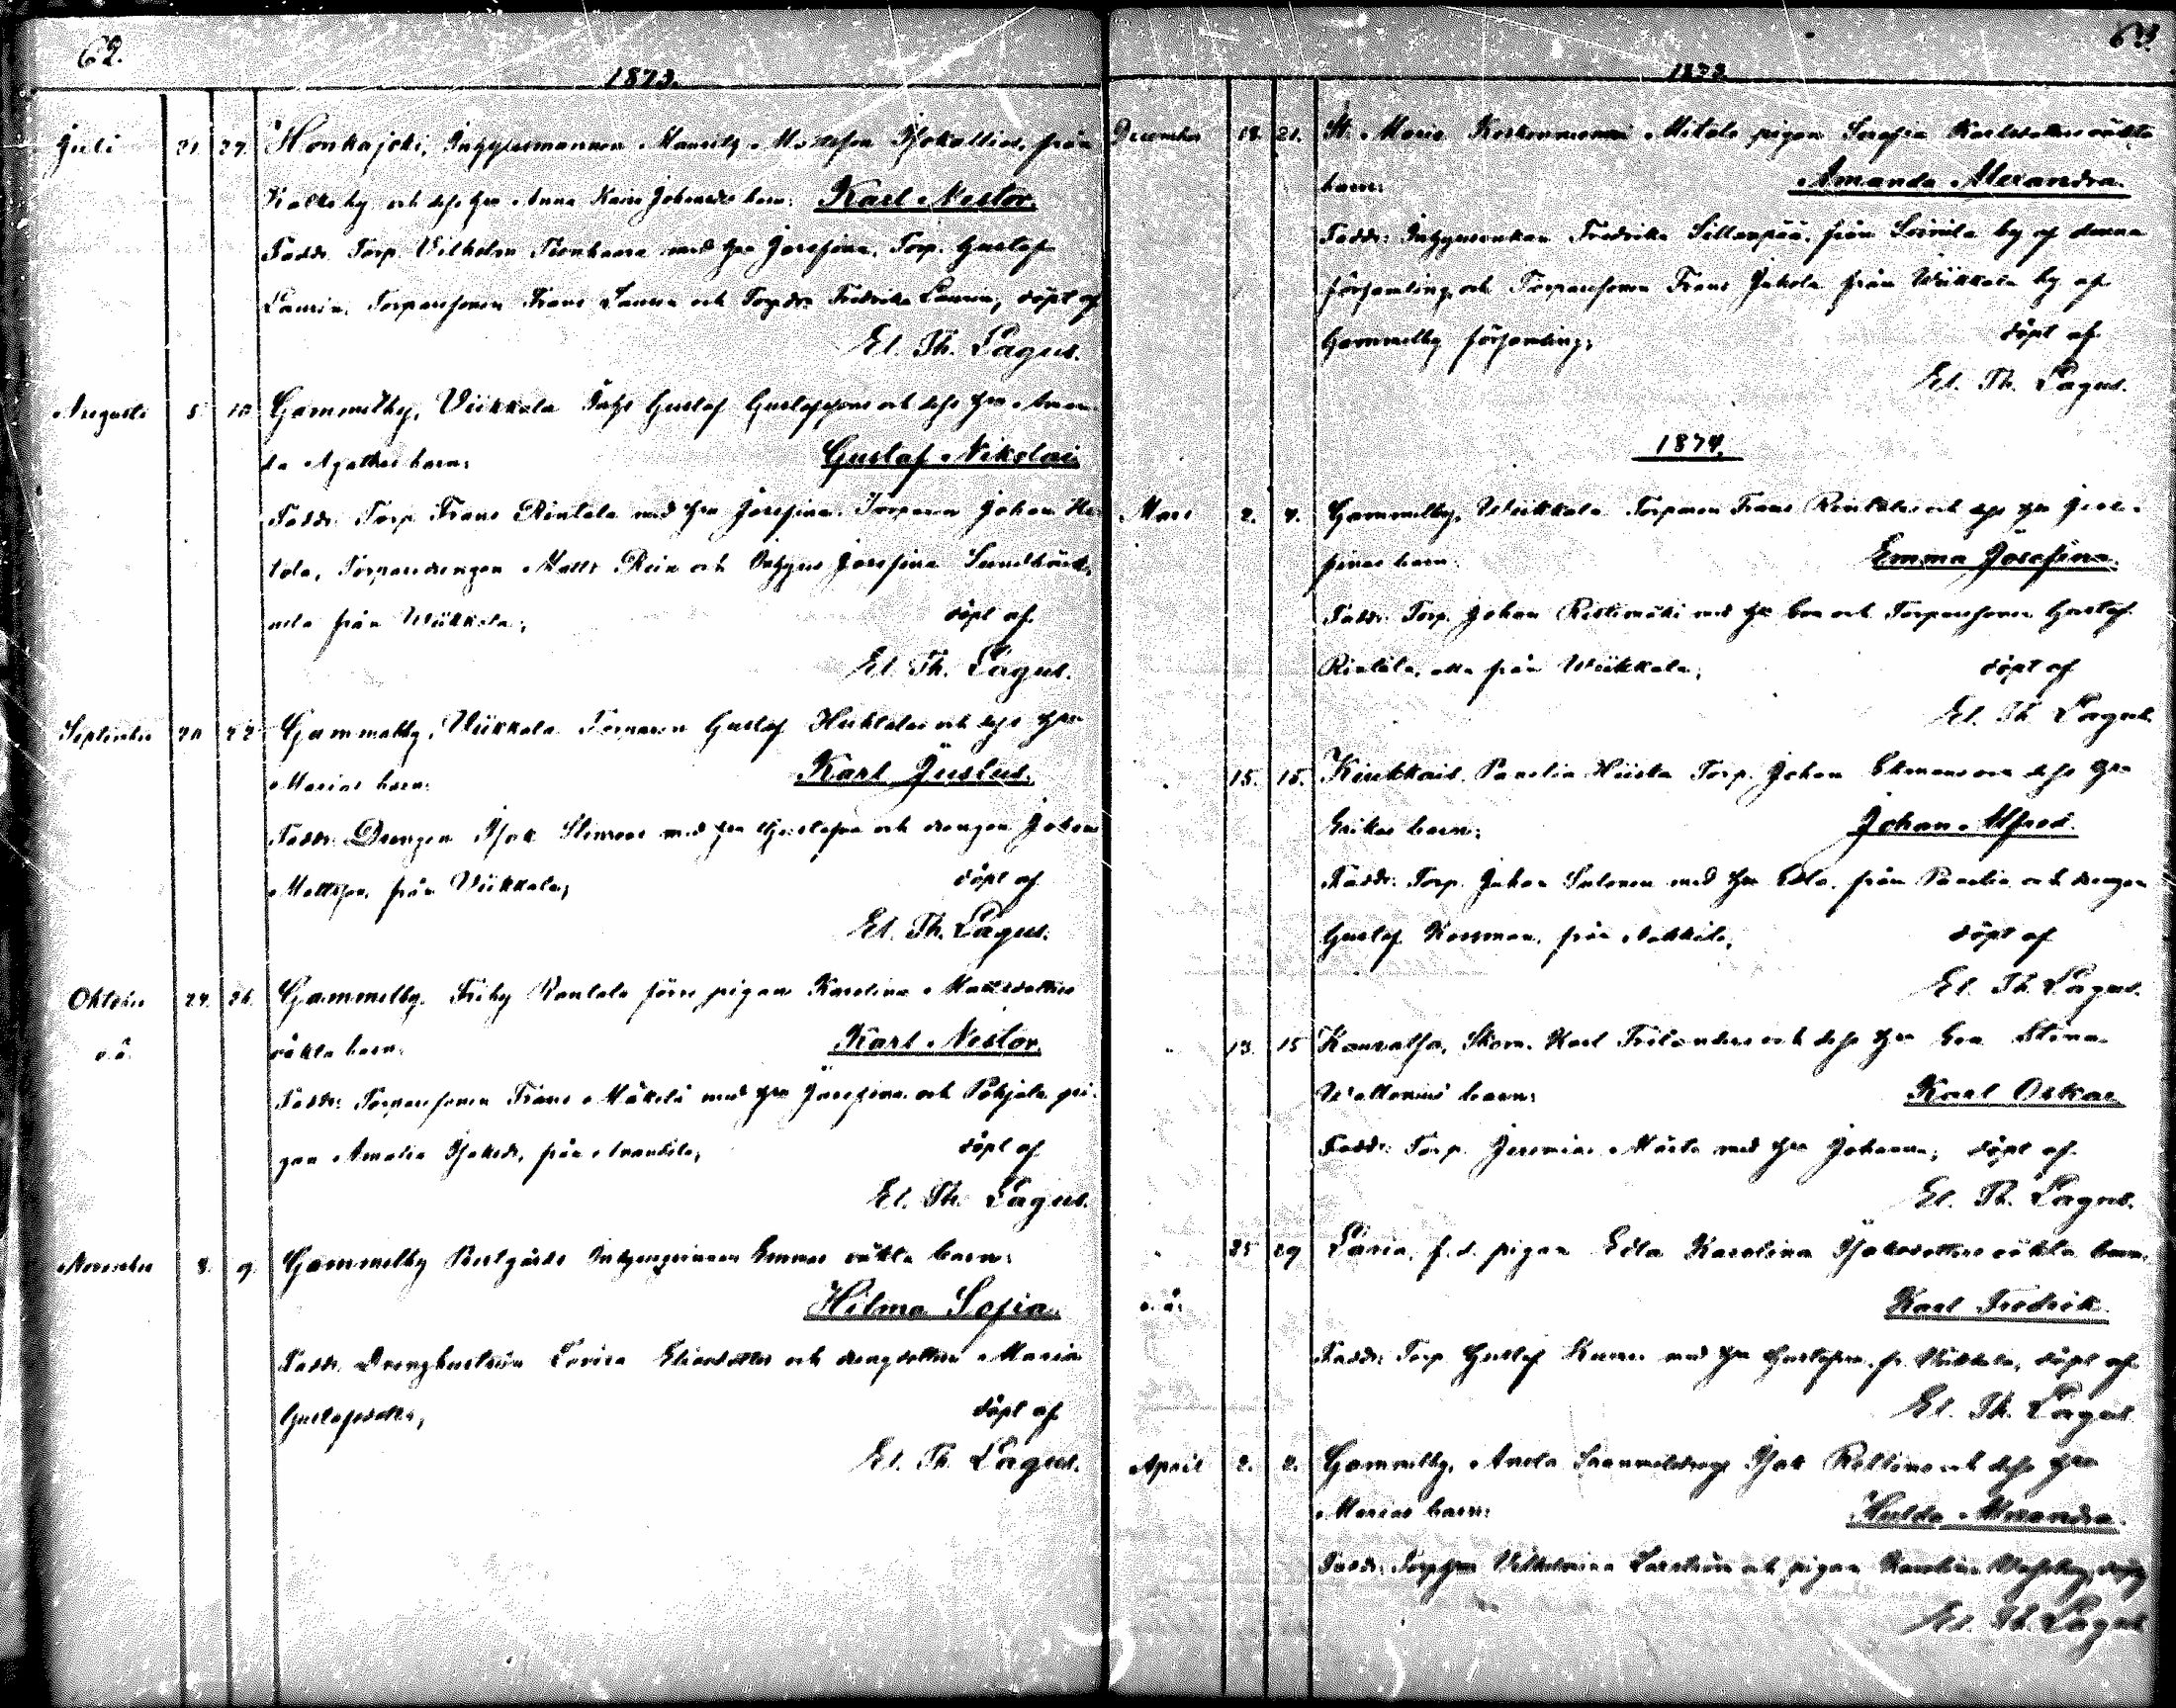 62.
1873.
Juli 21. 27. Honkajoki, Inhysesmannen Mauritz Mattsson Isokallios, från
Kallo by och dess hu Anna Kaisa Johansds barn: Karl Nestor.
Faddr. Torp. Vilhelm med hu Josefina, Torp. Gustaf
Laurén, Torparesonen Frans Laurén och Torpdr. Fredrika Laurén, döpt af
El. Th. Lagus.
Augusti 8 10 Gammelby, Viikkala Inhs Gustaf Gustafssons och dess hu Aman-
da Agathas barn: Gustaf Nikolai.
Faddr. Torp. Frans Rintala med hu Josefina, Torparen Johan
tola, Torparedrengen Matts Rein och Inhyses Josefina
från Wiikkala; döpt af
El. Th. Lagus.
September 20 22 Gammelby, Viikkala Torparen Gustaf och dess hu
Marias barn: Karl Justus.
Faddr. Drengen Isak med hu Gustafva och drengen Johan
Mattsson, från Viikkala; döpt af
El. Th. Lagus.
Oktober 24. 26. Gammelby, Friby Rantala förre pigans Karolina Mattsdotters
o.ä. oäkta barn: Karl Nestor.
Faddr. Torparesonen Frans Mäkelä med hu Josefina och Pohjala pi-
gan Amalia Isaksdr, från Anundila; döpt af
El. Th. Lagus.
November 8. 9. Gammelby Inhysesqvinnan Emmas oäkta barn:
Hilma Sofia.
Faddr. Drenghustrun Lovisa och drengdottren Maria
Gustafsdotter; döpt af
El. Th. Lagus.
63.
1873.
December 18. 21. St. Marie Mikola pigan Serafia Karlsdotters oäkta
barn: Amanda Alexandra.
Faddr: Inhysesenkan Fredrika Sillanpää, från by af denna
församling, och Torparesonen Frans Jakola från Wiikkala by af
Gammelby församling; döpt af
El. Th. Lagus.
1874.
Mars 2. 4. Gammelby, Wiikkala Torparen Frans Rintalas och dess hu Jose-
finas barn: Emma Josefina.
Faddr: Torp. Johan Ristimäki med hu Eva och Torparesonen Gustaf
Rintala, alla från Wiikkala; döpt af
El. Th. Lagus.
15. 15. Kiukkais, Panelia Hiista Torp. Johan Ekmans och dess hu
Erikas barn: Johan Alfred.
Faddr: Torp. Johan Salonen med hu Edla, från Panelia och drengen
Gustaf Korsman, från Nakkila; döpt af
El. Th. Lagus.
13. 15 Kauvatsa, Skom. Karl Frilanders och dess hu Eva Stina
Wallenii barn: Karl Oskar.
Faddr: Torp. Jeremias med hu Johanna; döpt af
El. Th. Lagus.
25 29 Lavia, f.d. pigan Edla Karolina Isaksdotters oäkta barn:
o.ä. Karl Fredrik.
Faddr: Torp. Gustaf med hu Gustafva, fr. Wiikkala, döpt af
El. Th. Lagus
April 2. 2. Gammelby, Anola Isak och dess hu
Marias barn: Hulda Alexandra.
Faddr: Torphu Vilhelmina och pigan Karolina
El. Th. Lagus